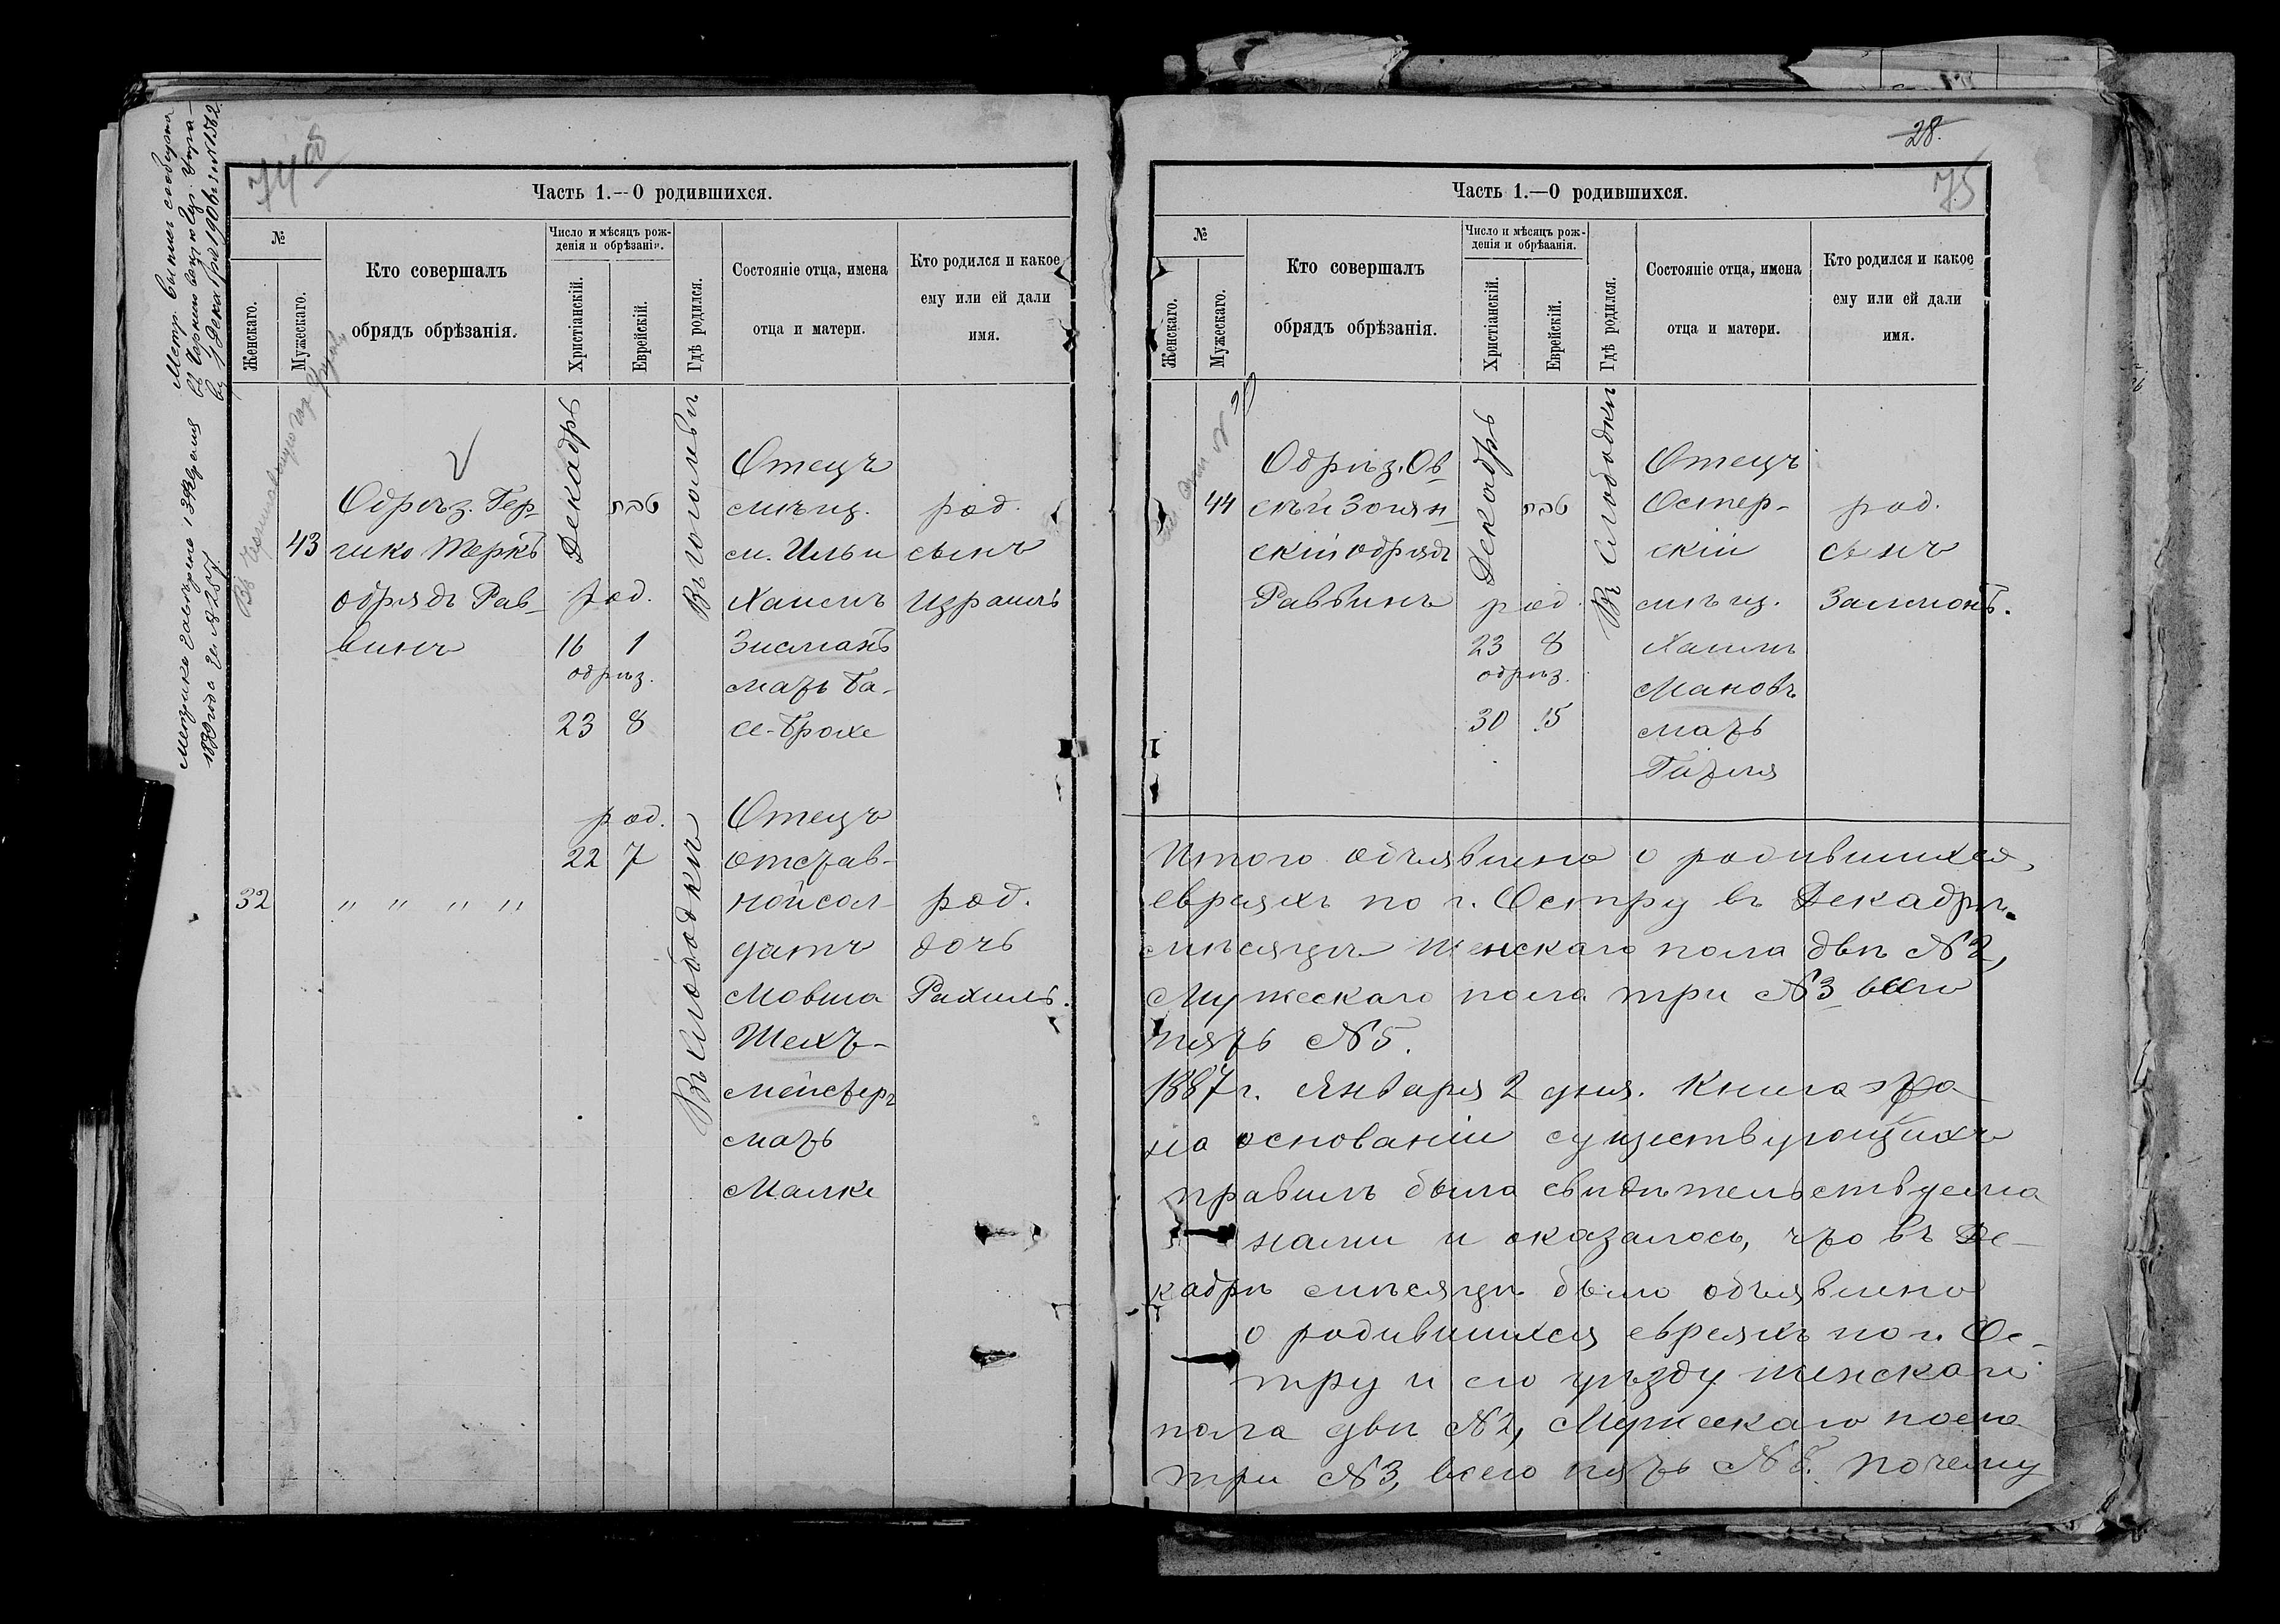 Метр. вып. сообщена
1 Декабря 1906 г. за №1562.
Метрика заверена 13 Февраля
за №257
74 об
Часть 1.--О родившихся.
№
Женскаго.
Мужескаго.
Кто совершалъ
обрядъ обрѣзанія.
Число и мѣсяцъ рож-
денія и обрѣзанія.
Христіанскій.
Еврейскій.
Гдѣ родился.
Состояніе отца, имена
отца и матери.
Кто родился и какое
ему или ей дали
имя.
43
Обрѣз. Гер-
шко Теркъ
обрядъ Рав-
винъ
Декабрь
род.
16
обрѣз.
23
טבת
1
8
Въ Гоголевѣ
Отецъ
мѣщ.
м. Ильи
Хаимъ
Зисманъ
мать Ба-
се-Брохе
род.
сынъ
Израиль
32
" " " "
род.
22 7
Въ Слободкѣ
Отецъ
отстав-
ной сол-
датъ
Мовша
Шехт-
мейстеръ
мать
Малке
род.
дочь
Рахиль.
28.
75
Часть 1.—О родившихся.
№
Женскаго.
Мужескаго.
Кто совершалъ
обрядъ обрѣзанія.
Число и мѣсяцъ рож-
денія и обрѣзанія.
Христіанскій.
Еврейскій.
Гдѣ родился.
Состояніе отца, имена
отца и матери.
Кто родился и какое
ему или ей дали
имя.
44
Обрѣз. Ов
сѣй Зоин-
скій обрядъ
Раввинъ
Декабрь
род.
23
обрѣз.
30
טבת
8
15
Въ Слободкѣ
Отецъ
Остер-
скій
мѣщ.
Хаимъ
Мановъ
мать
Гитля
род.
сынъ
Залмонъ.
Итого объявлено о родившихся
евреяхъ по г. Остру въ Декабрѣ
мѣсяцѣ женскаго пола двѣ №2,
Мужескаго пола три №3 всего
пять №5.
1887 г. Января 2 дня. Книга эта
на основаніи существующихъ
правилъ была свидѣтельствуема
нами и оказалось, что въ Де-
кабрѣ мѣсяцѣ было объявлено
о родившихся евреяхъ по г. Ос-
тру и его уѣзду женскаго
пола двѣ №2, Мужескаго пола
три №3, всего пять №5. почему